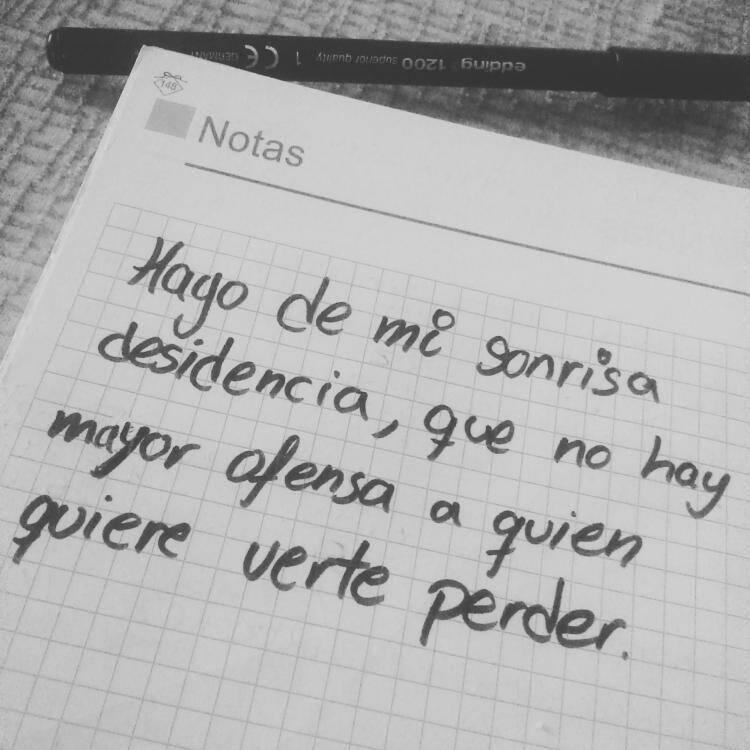 edding 1200 superior quality 1 CE GERMANY
148
Notas
Hago de mi sonrisa
desidencia, que no hay
mayor ofensa a quien
quiere verte perder.